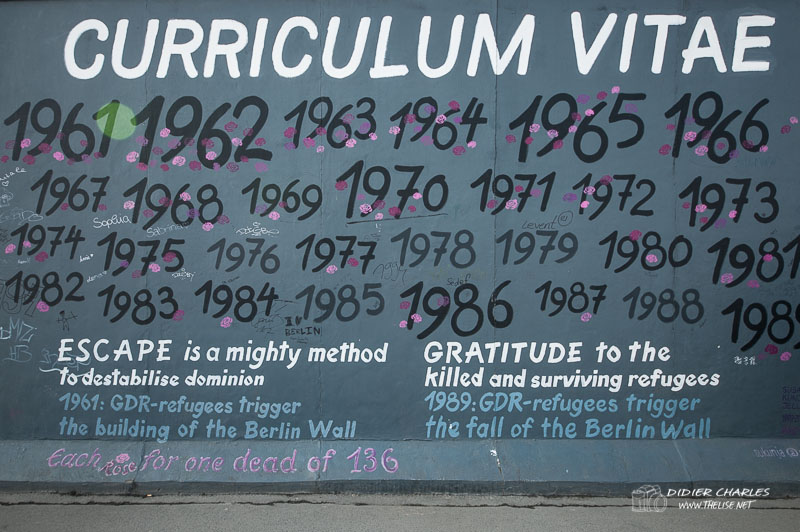 CURRICULUM VITAE
1961 1962 1963 1964 1965 1966
1967 1968 1969 1970 1971 1972 1973
1974 1975 1976 1977 1978 1979 1980 1981
1982 1983 1984 1985 1986 1987 1988 1989
Sophia
Levent
I
BERLIN
ESCAPE is a mighty method
to destabilise dominion
1961: GDR-refugees trigger
the building of the Berlin Wall
GRATITUDE to the
killed and surviving refugees
1989: GDR-refugees trigger
the fall of the Berlin Wall
Each Rose for one dead of 136
DIDIER CHARLES
WWW.THELISE.NET